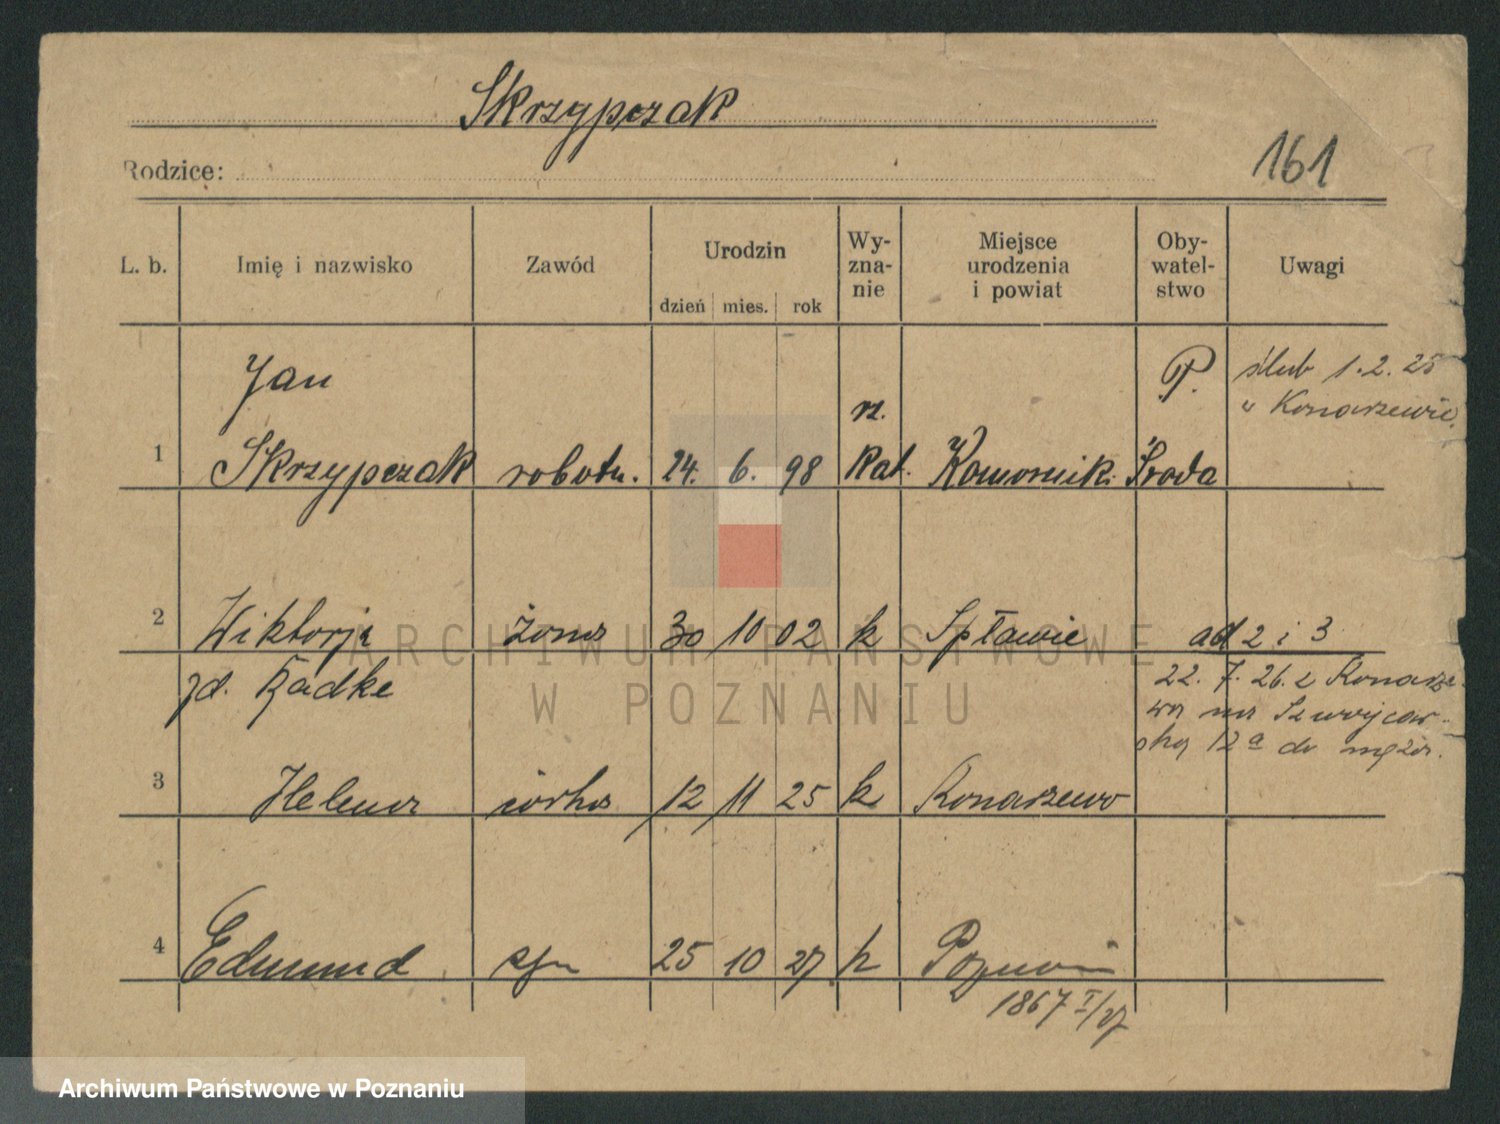 Skrzypczak
Rodzice:
161
L. b. Imię i nazwisko Zawód Urodzin dzień mies. rok Wy-zna-nie Miejsce urodzenia i powiat Oby-watel-stwo Uwagi
Jan P. ślub 1.2.25
rz. w Konarzewie
1 Skrzypczak robotn. 24. 6. 98 kat. Komornik. Środa
2 Wiktorja żona 30 10 02 k Spławie ad 2 i 3
zd. Radke 22. 7. 26. z Konarze-
wa na Szwajcar-
ską 12a do męża.
3 Helena córka 12 11 25 k Konarzewo
4 Edmund syn 25 10 27 k Poznań
1867 I/27
ARCHIWUM PAŃSTWOWE
W POZNANIU
Archiwum Państwowe w Poznaniu